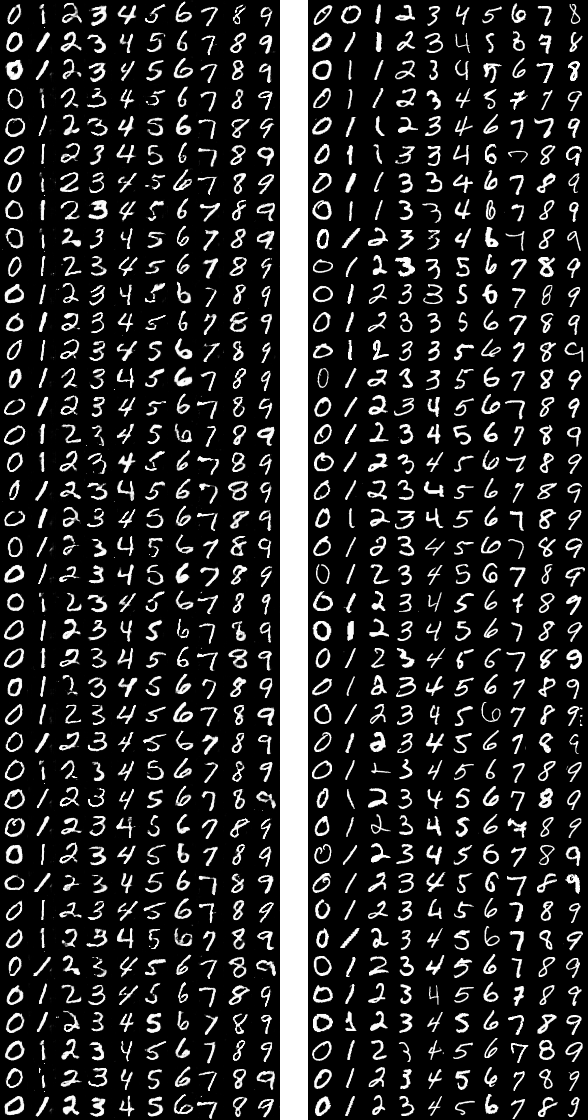 0 1 2 3 4 5 6 7 8 9
0 1 2 3 4 5 6 7 8 9
0 1 2 3 4 5 6 7 8 9
0 1 2 3 4 5 6 7 8 9
0 1 2 3 4 5 6 7 8 9
0 1 2 3 4 5 6 7 8 9
0 1 2 3 4 5 6 7 8 9
0 1 2 3 4 5 6 7 8 9
0 1 2 3 4 5 6 7 8 9
0 1 2 3 4 5 6 7 8 9
0 1 2 3 4 5 6 7 8 9
0 1 2 3 4 5 6 7 8 9
0 1 2 3 4 5 6 7 8 9
0 1 2 3 4 5 6 7 8 9
0 1 2 3 4 5 6 7 8 9
0 1 2 3 4 5 6 7 8 9
0 1 2 3 4 5 6 7 8 9
0 1 2 3 4 5 6 7 8 9
0 1 2 3 4 5 6 7 8 9
0 1 2 3 4 5 6 7 8 9
0 1 2 3 4 5 6 7 8 9
0 1 2 3 4 5 6 7 8 9
0 1 2 3 4 5 6 7 8 9
0 1 2 3 4 5 6 7 8 9
0 1 2 3 4 5 6 7 8 9
0 1 2 3 4 5 6 7 8 9
0 1 2 3 4 5 6 7 8 9
0 1 2 3 4 5 6 7 8 9
0 1 2 3 4 5 6 7 8 9
0 1 2 3 4 5 6 7 8 9
0 1 2 3 4 5 6 7 8 9
0 1 2 3 4 5 6 7 8 9
0 1 2 3 4 5 6 7 8 9
0 1 2 3 4 5 6 7 8 9
0 1 2 3 4 5 6 7 8 9
0 1 2 3 4 5 6 7 8 9
0 1 2 3 4 5 6 7 8 9
0 1 2 3 4 5 6 7 8 9
0 1 2 3 4 5 6 7 8 9
0 1 2 3 4 5 6 7 8 9
0 0 1 2 3 4 5 6 7 8
0 1 1 2 3 4 5 6 7 8
0 1 1 2 3 4 5 6 7 8
0 1 1 2 3 4 5 7 7 9
0 1 1 2 3 4 6 7 7 9
0 1 1 3 3 4 6 7 8 9
0 1 1 3 3 4 6 7 8 9
0 1 1 3 3 4 6 7 8 9
0 1 2 3 3 4 6 7 8 9
0 1 2 3 3 5 6 7 8 9
0 1 2 3 3 5 6 7 8 9
0 1 2 3 3 5 6 7 8 9
0 1 2 3 3 5 6 7 8 9
0 1 2 3 3 5 6 7 8 9
0 1 2 3 4 5 6 7 8 9
0 1 2 3 4 5 6 7 8 9
0 1 2 3 4 5 6 7 8 9
0 1 2 3 4 5 6 7 8 9
0 1 2 3 4 5 6 7 8 9
0 1 2 3 4 5 6 7 8 9
0 1 2 3 4 5 6 7 8 9
0 1 2 3 4 5 6 7 8 9
0 1 2 3 4 5 6 7 8 9
0 1 2 3 4 5 6 7 8 9
0 1 2 3 4 5 6 7 8 9
0 1 2 3 4 5 6 7 8 9
0 1 2 3 4 5 6 7 8 9
0 1 2 3 4 5 6 7 8 9
0 1 2 3 4 5 6 7 8 9
0 1 2 3 4 5 6 7 8 9
0 1 2 3 4 5 6 7 8 9
0 1 2 3 4 5 6 7 8 9
0 1 2 3 4 5 6 7 8 9
0 1 2 3 4 5 6 7 8 9
0 1 2 3 4 5 6 7 8 9
0 1 2 3 4 5 6 7 8 9
0 1 2 3 4 5 6 7 8 9
0 1 2 3 4 5 6 7 8 9
0 1 2 3 4 5 6 7 8 9
0 1 2 3 4 5 6 7 8 9